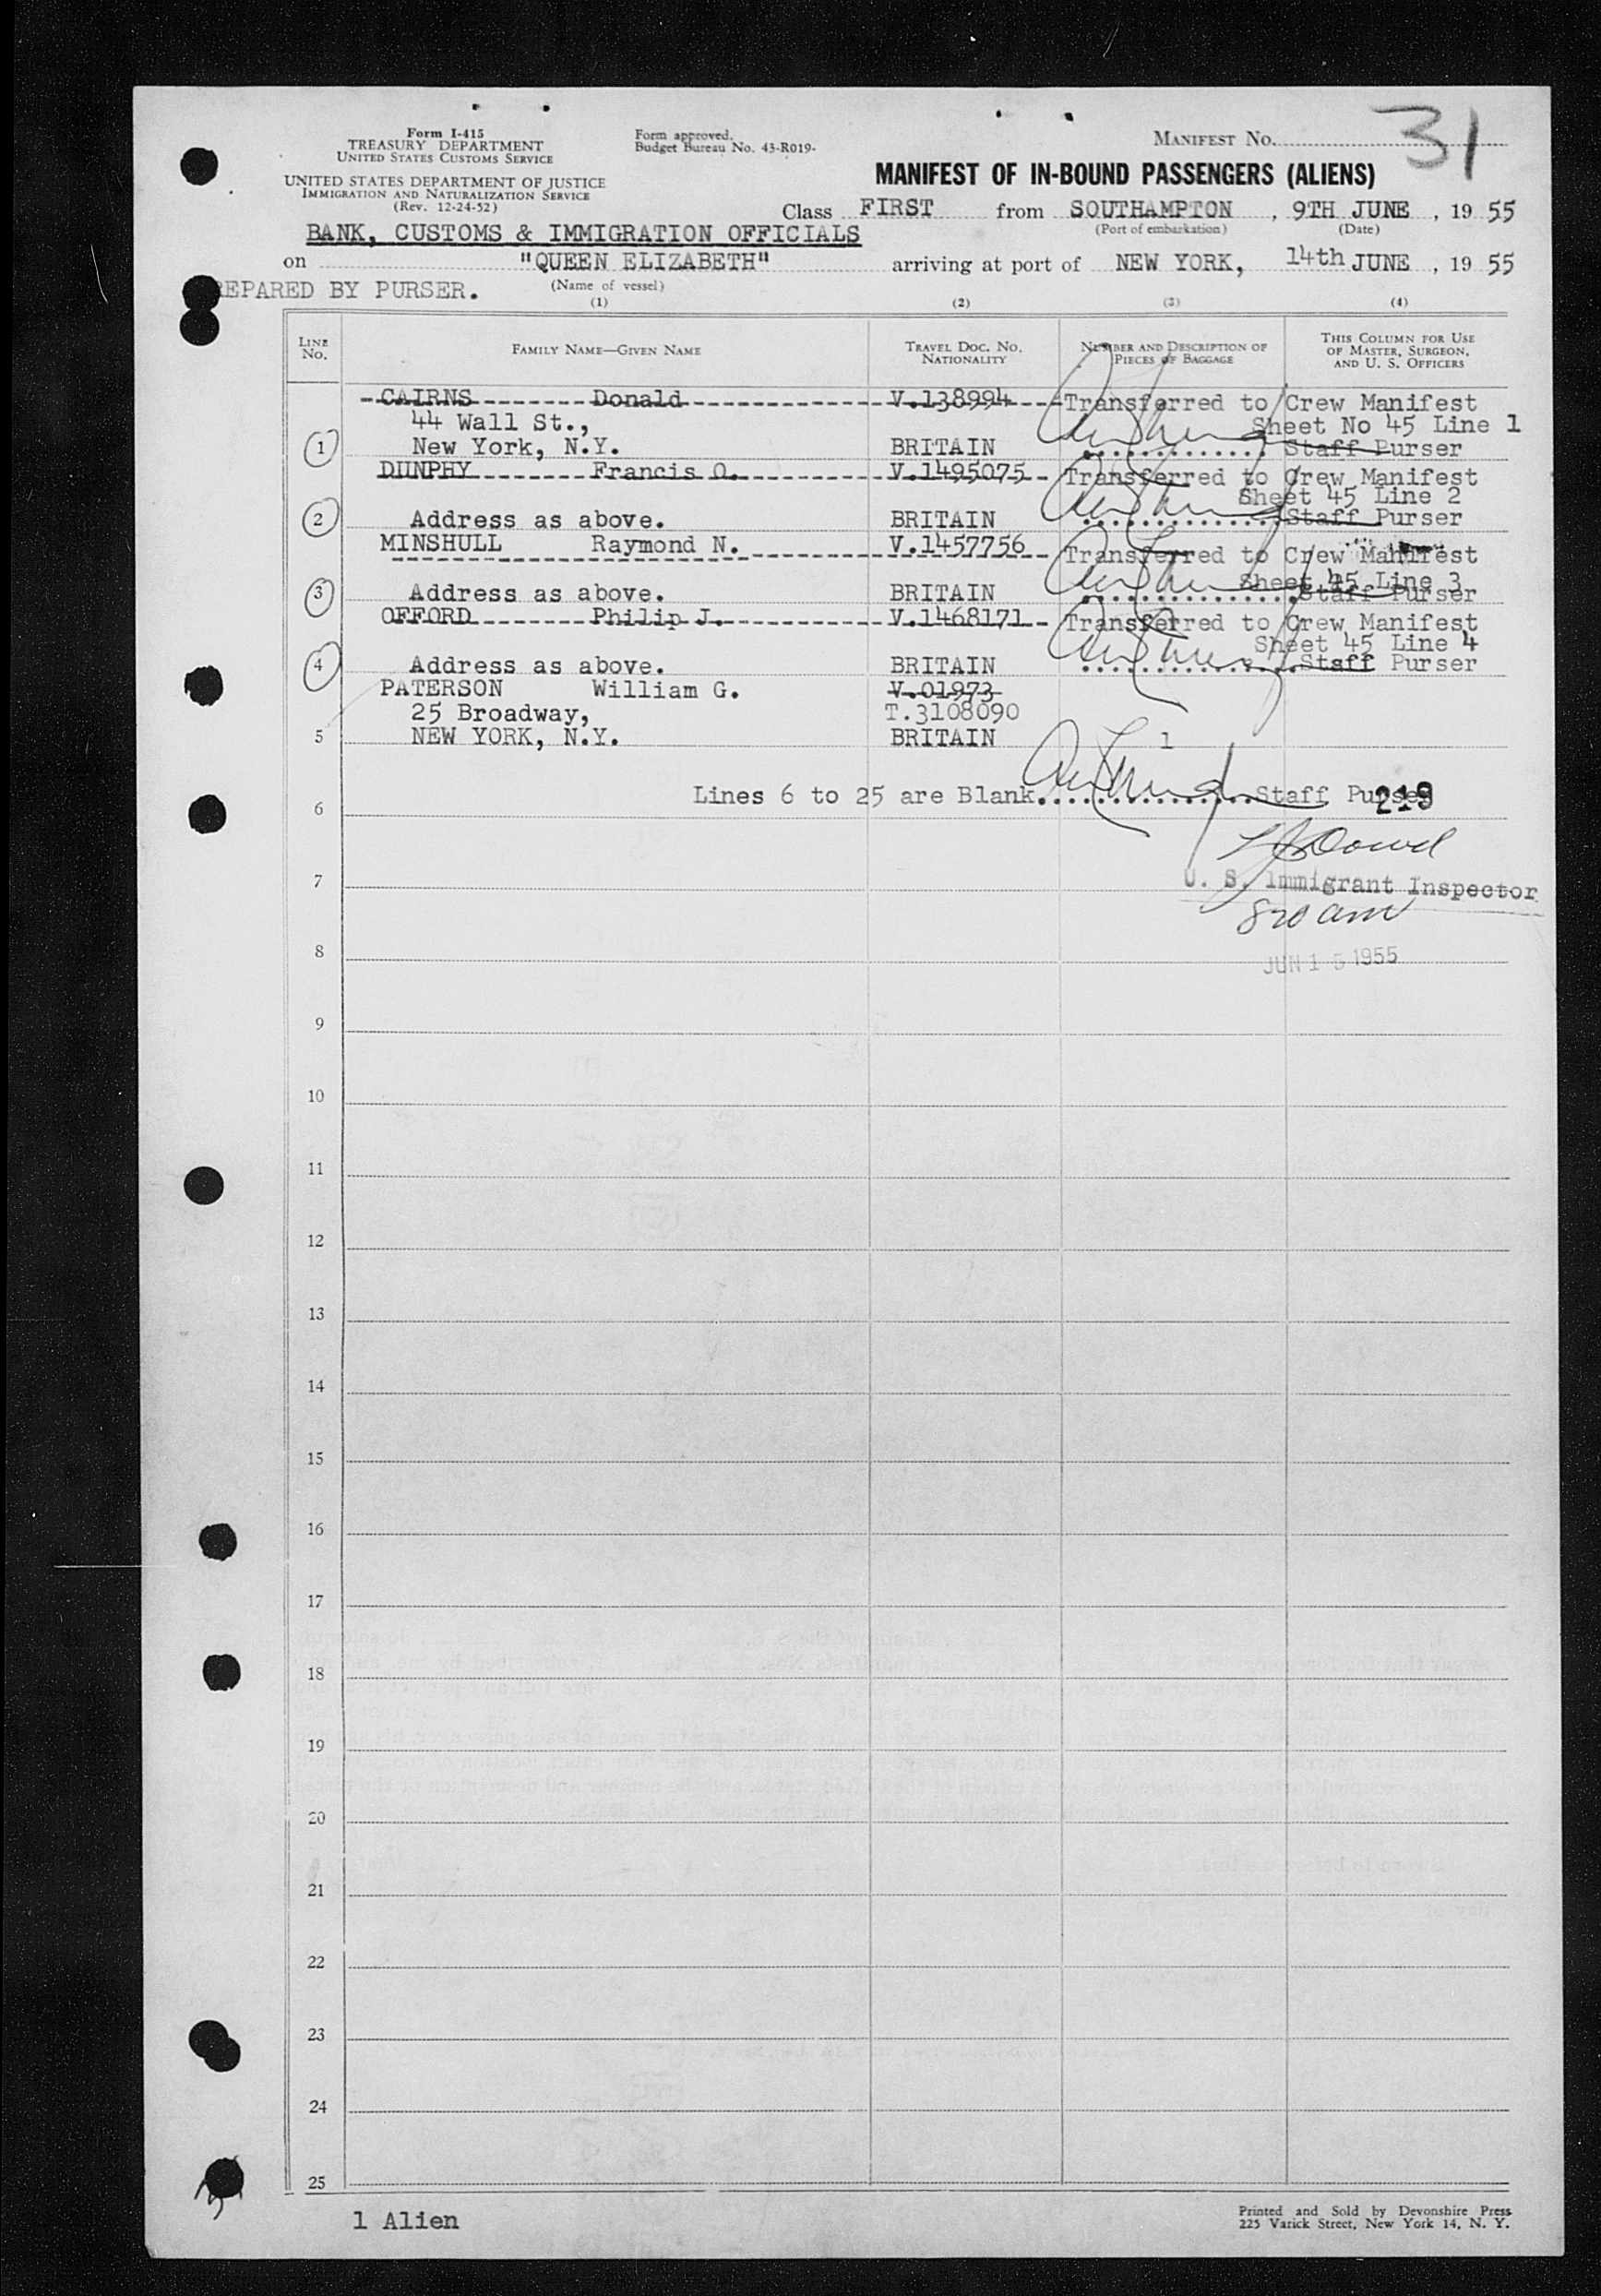 Form I-415
TREASURY DEPARTMENT
UNITED STATES CUSTOMS SERVICE
UNITED STATES DEPARTMENT OF JUSTICE
IMMIGRATION AND NATURALIZATION SERVICE
(Rev. 12-24-52)
Form approved.
Budget Bureau No. 43-R019-
MANIFEST No. 31
MANIFEST OF IN-BOUND PASSENGERS (ALIENS)
Class FIRST from SOUTHAMPTON, 9TH JUNE, 19 55
(Port of embarkation) (Date)
BANK, CUSTOMS & IMMIGRATION OFFICIALS
on "QUEEN ELIZABETH" arriving at port of NEW YORK, 14th JUNE, 19 55
(Name of vessel)
REPARED BY PURSER.
(1) (2) (3) (4)
LINE No. FAMILY NAME—GIVEN NAME TRAVEL DOC. NO. NATIONALITY NUMBER AND DESCRIPTION OF PIECES OF BAGGAGE THIS COLUMN FOR USE OF MASTER, SURGEON, AND U. S. OFFICERS
CAIRNS Donald V.138994 Transferred to Crew Manifest
44 Wall St., Sheet No 45 Line 1
1 New York, N.Y. BRITAIN Staff Purser
DUNPHY Francis O. V.1495075 Transferred to Crew Manifest
Sheet 45 Line 2
2 Address as above. BRITAIN Staff Purser
MINSHULL Raymond N. V.1457756 Transferred to Crew Manifest
Sheet 45 Line 3
3 Address as above. BRITAIN Staff Purser
OFFORD Philip J. V.1468171 Transferred to Crew Manifest
Sheet 45 Line 4
4 Address as above. BRITAIN Staff Purser
PATERSON William G. V.01973
25 Broadway, T.3108090
5 NEW YORK, N.Y. BRITAIN 1
Lines 6 to 25 are Blank. Staff Purser
219
6
7
U. S. Immigrant Inspector
820 am
8
JUN 15 1955
9
10
11
12
13
14
15
16
17
18
19
20
21
22
23
24
25
1 Alien
Printed and Sold by Devonshire Press
225 Varick Street, New York 14, N. Y.